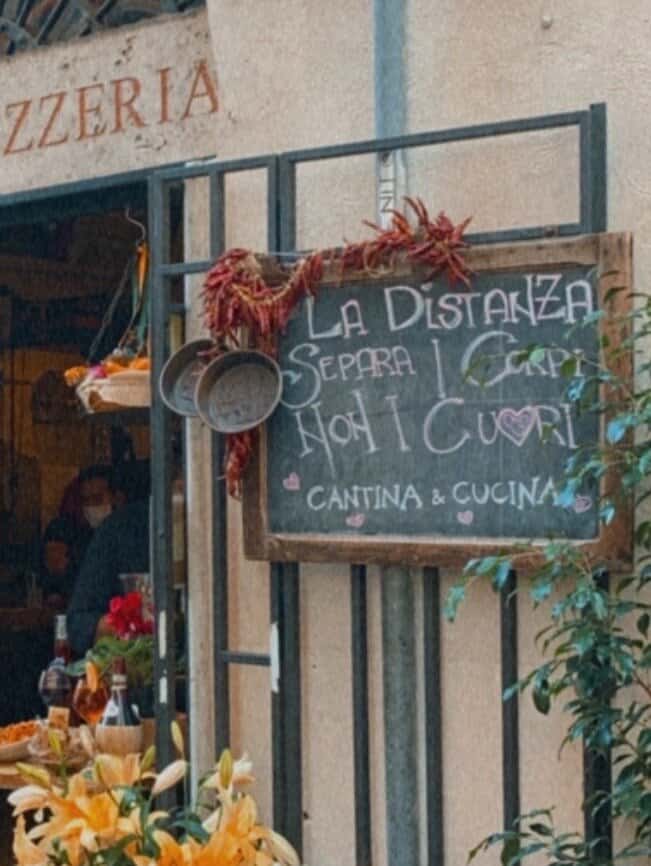 ZZERIA
La Distanza
Separa I Corpi
Non I Cuori
CANTINA & CUCINA